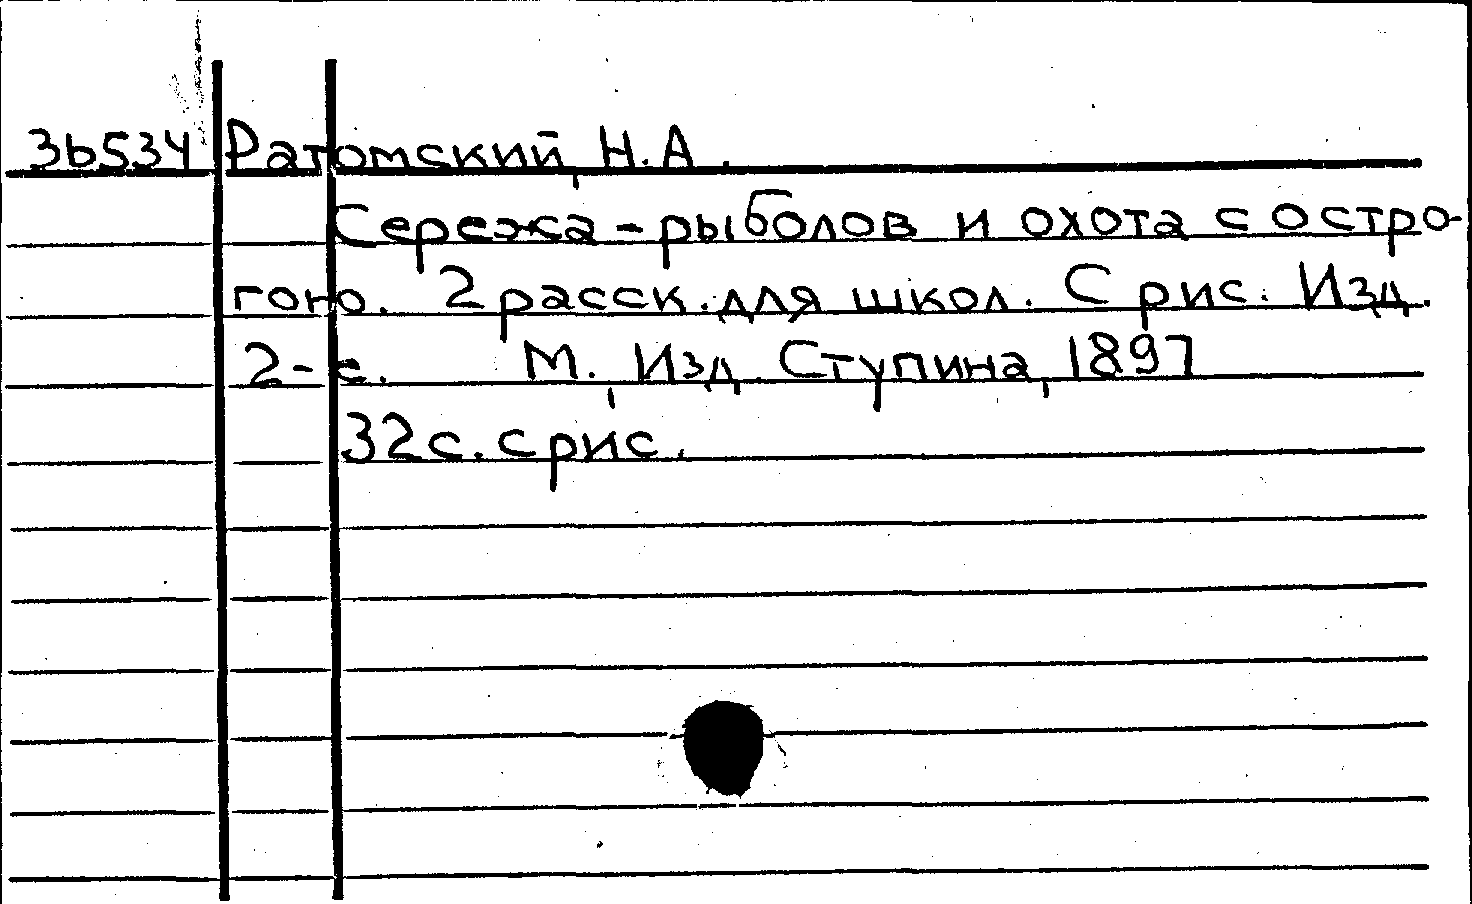 36534 Ратомский, Н.А.
Сережа-рыболов и охота с остро-
гою. 2 расск. для школ. С рис. Изд.
2-е. М., Изд. Ступина, 1897
32 с. с рис.